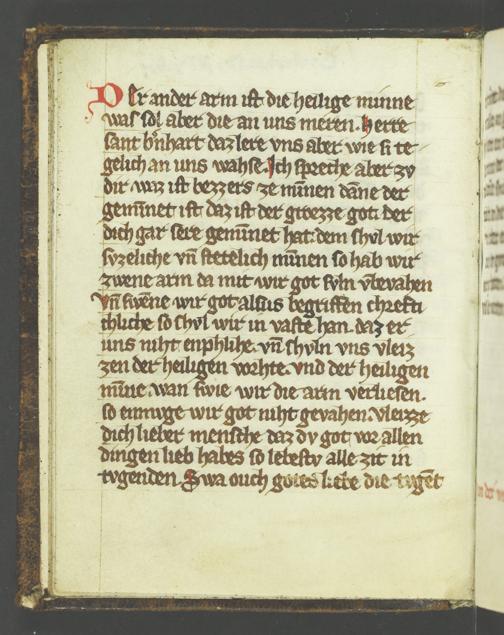 Der ander arm ist die heilige minne
was sol aber die an uns meren. Herre
sant b'nhart daz lere vns aber wie si te
gelich an uns wahse. Ich spreche aber zv
dir waz ist bezzers ze minnen danne der
geminnet ist daz ist der groezze got. der
dich gar sere geminnet hat. dem shvl wir
svzeliche vn̄ stetelich minnen so hab wir
zwene arm da mit wir got svln vbevahen
Vn̄ swene wir got alsus begriffen chrefti
chliche so shvl wir in vaste han. daz er
uns niht enphlihe. vn̄ shvln vns vleiz
zen der heiligen vorhte. vnd der heiligen
minne. wan swie wir die arm verliesen.
so enmvge wir got niht gevahen. Vleizze
dich lieber mensche daz dv got vor allen
dingen lieb habes so lebestv alle zit in
tvgenden. Swa ouch gotes liebe die tvgēt